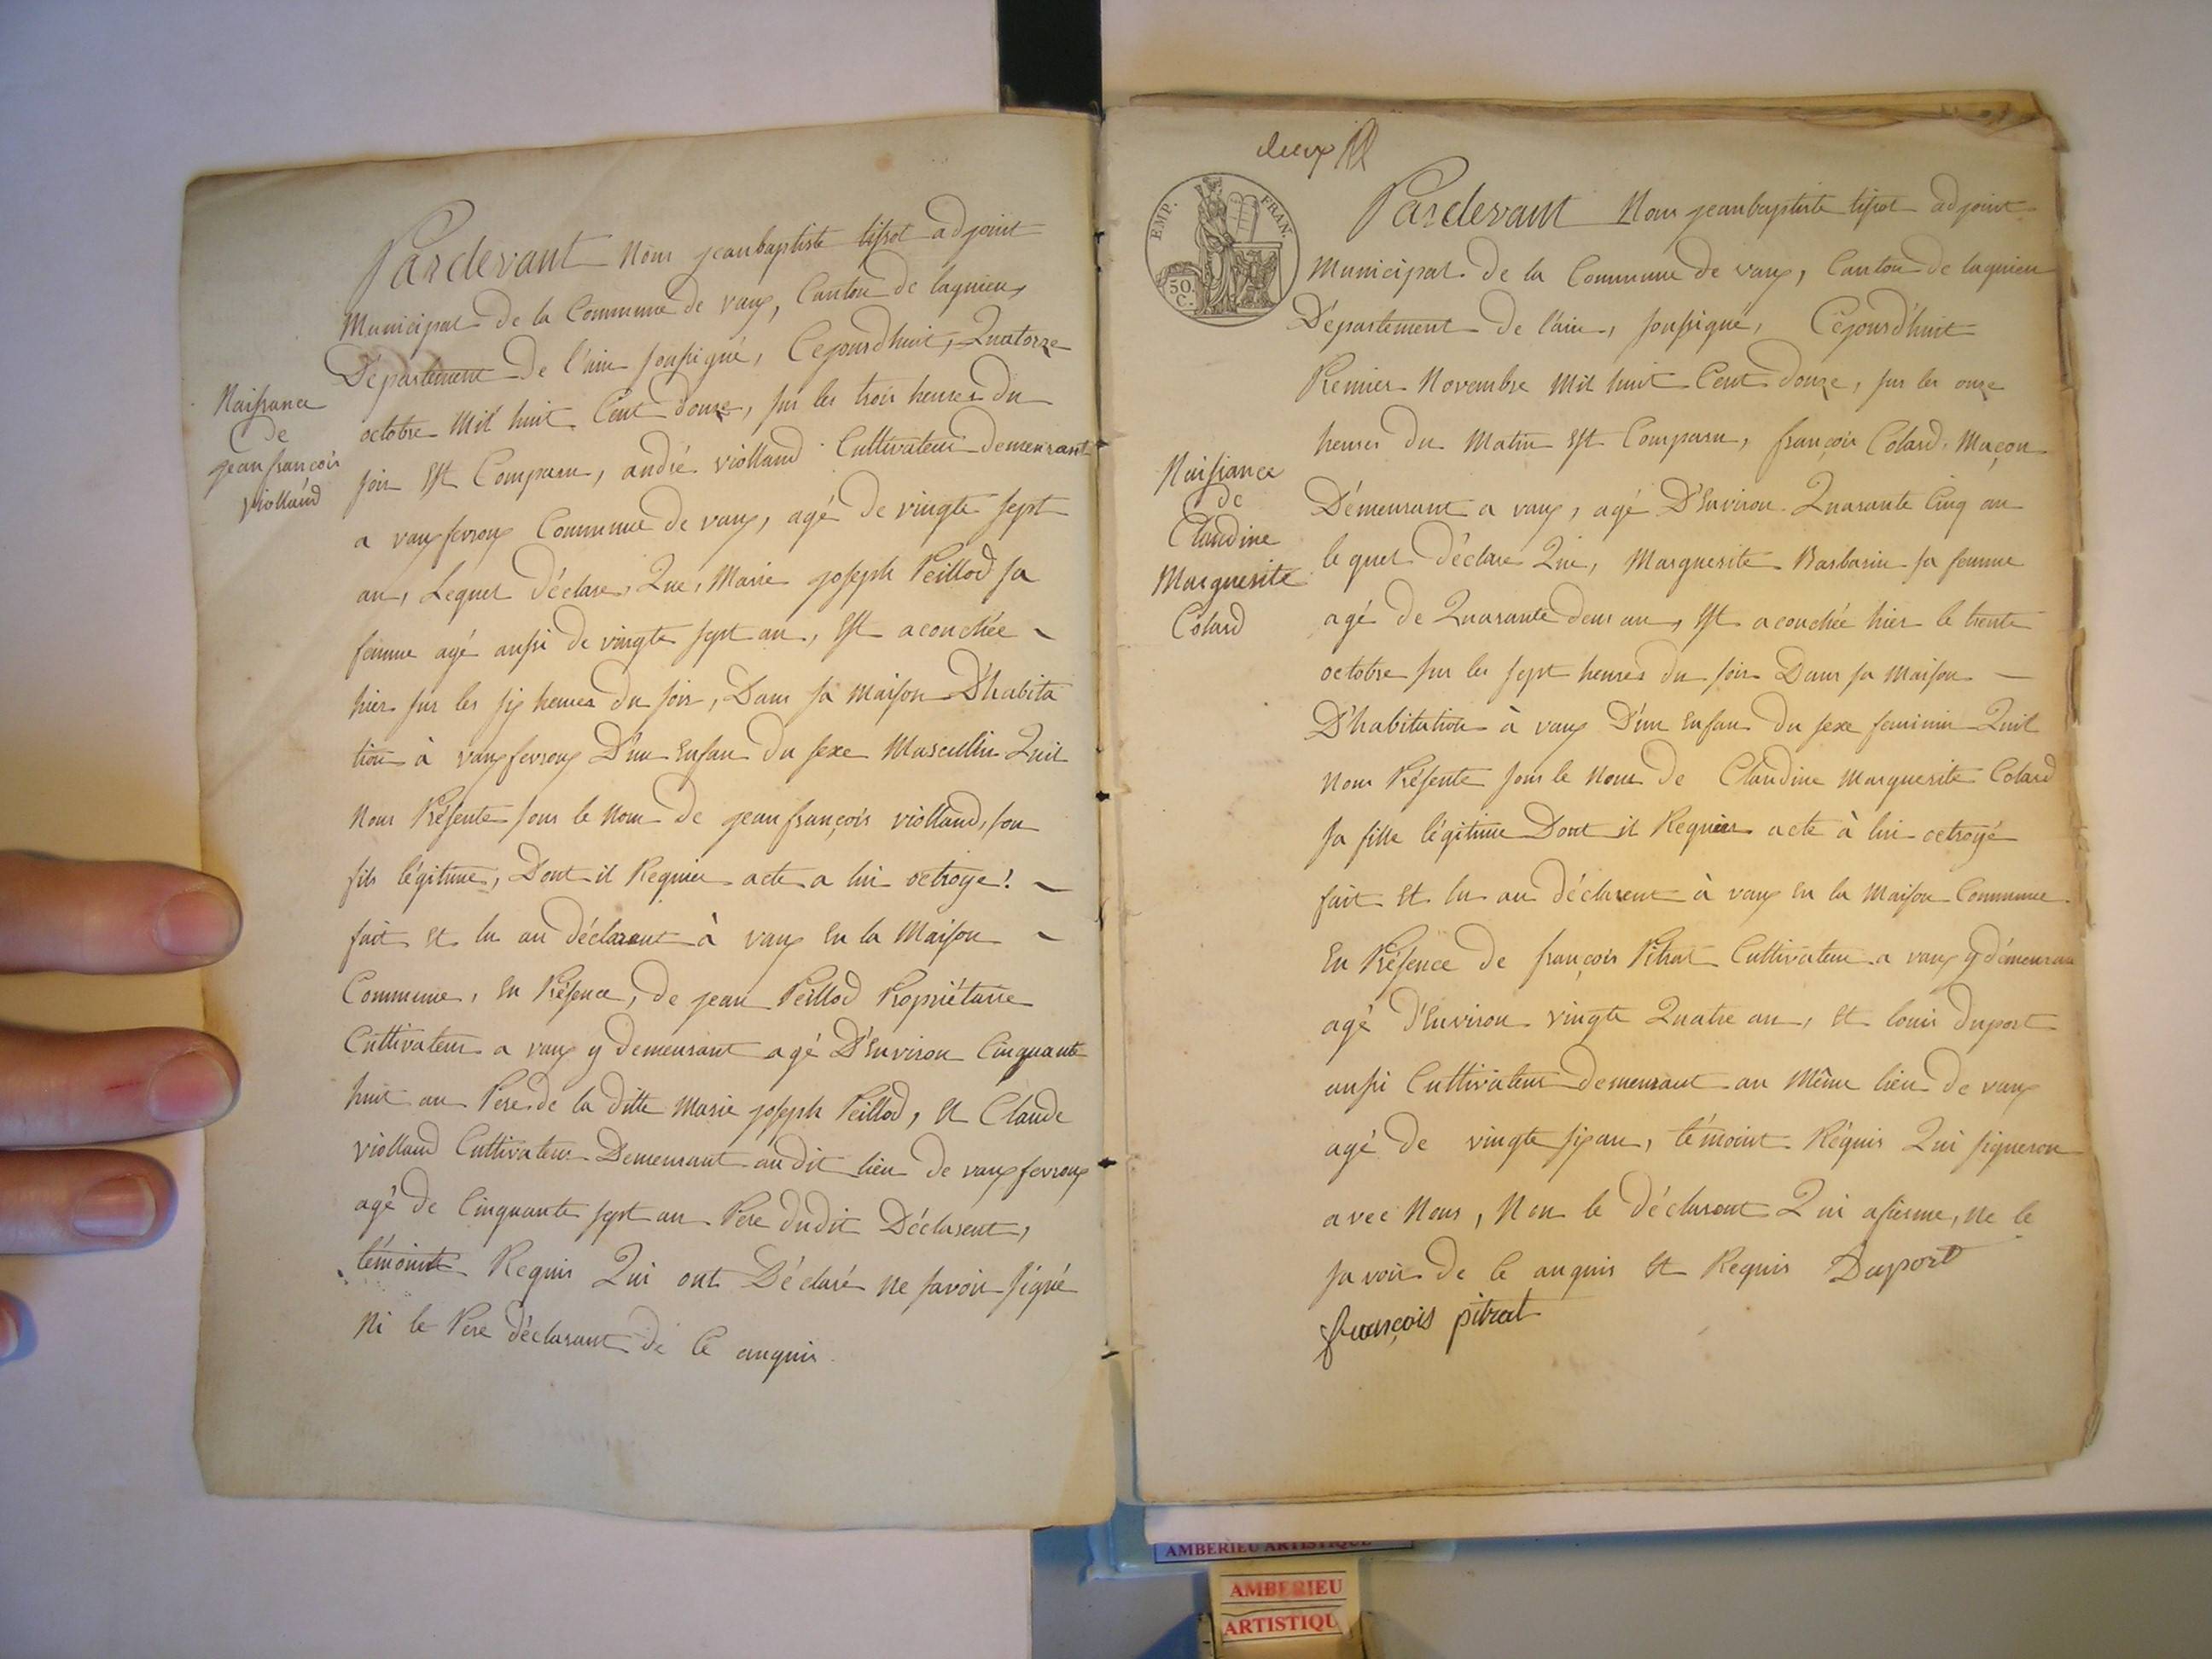 Naissance
de
jean françois
violland
Pardevant Nous jeanbaptiste tissot adjoint
Municipal de la Commune de vaux, Canton de lagnieu,
Département de l'ain soussigné, Cejourdhuit, Quatorze
octobre Mil huit Cent douze, sur les trois heures du
soir Est Comparu, andré violland Cultivateur demeurant
a vauxfevroux Commune de vaux, agé de vingte sept
an, Lequel déclare, Que, Marie joseph Peillod sa
femme agé aussi de vingte sept an, Est acouchée ~
hier sur les six heures du soir, Dans sa maison D'habita
tion à vauxfevroux D'un Enfan du sexe Masculin Quil
Nous Présente sous le Nom de jean françois violland, son
fils légitime, Dont il Requier acte a lui octroyé. ~
fait et lu au déclarant à vaux En la Maison ~
Commune, En Présence, de jean Peillod Propriétaire
Cultivateur a vaux y demeurant agé D'Environ Cinquante
huit an Pere de la ditte Marie joseph Peillod, Et Claude
violland Cultivateur Demeurant audit lieu de vauxfevroux
agé de Cinquante sept an Pere dudit Déclarent,
témoint Requis Qui ont Déclaré ne savoir signé
Ni le Pere déclarant de Ce enquis
deux
EMP. FRAN.
50.
C.
Naissance
de
Claudine
Marguerite
Colard
Pardevant Nous jeanbaptiste tissot adjoint
Municipal de la Commune de vaux, Canton de lagnieu
Département de l'ain, soussigné, Cejourd'huit
Premier Novembre Mil huit Cent douze, sur les onze
heures du Matin Est Comparu, françois Colard, Maçon
Démeurant a vaux, agé D'Environ Quarante Cinq an
le quel déclare Que, Marguerite Barbarin sa femme
agé de Quarante deux an, Est acouchée hier le trente
octobre sur les sept heures du soir Dans sa Maison —
D'habitation à vaux D'un Enfan du sexe feminin Quil
Nous Présente sous le Nom de Claudine Marguerite Colard
sa fille légitime Dont il Requier acte à lui octroyé
fait Et lu au déclarent à vaux En la Maison Commune
En Présence de françois Pitrat Cultivateur a vaux y démeuran
agé D'Environ vingte Quatre an, Et louis duport
aussi Cultivateur demeurant au Même lieu de vaux
agé de vingte six an, témoint Réquis Qui signeron
avec Nous, Non le déclarant Qui afierme, ne le
savoir de Ce anquis Et Requis Duport
françois pitrat
AMBERIEU ARTISTIQUE
AMBERIEU
ARTISTIQU